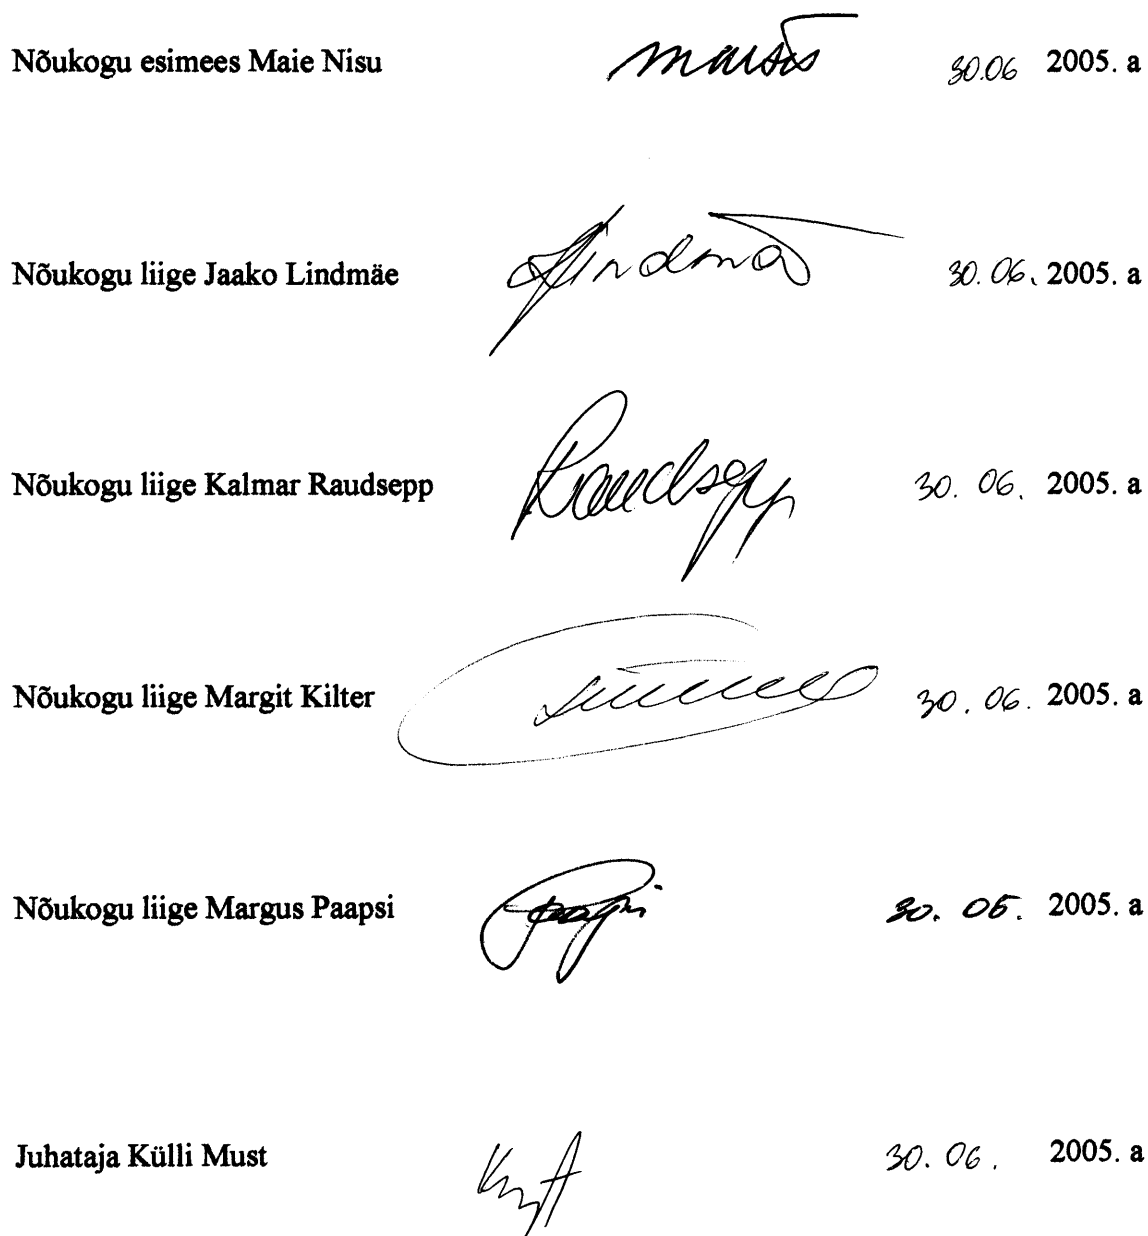 Nõukogu esimees Maie Nisu 30.06 2005. a
Nõukogu liige Jaako Lindmäe Lindmä 30. 06. 2005. a
Nõukogu liige Kalmar Raudsepp Raudsepp 30. 06. 2005. a
Nõukogu liige Margit Kilter 30. 06. 2005. a
Nõukogu liige Margus Paapsi 30. 06. 2005. a
Juhataja Külli Must 30. 06. 2005. a